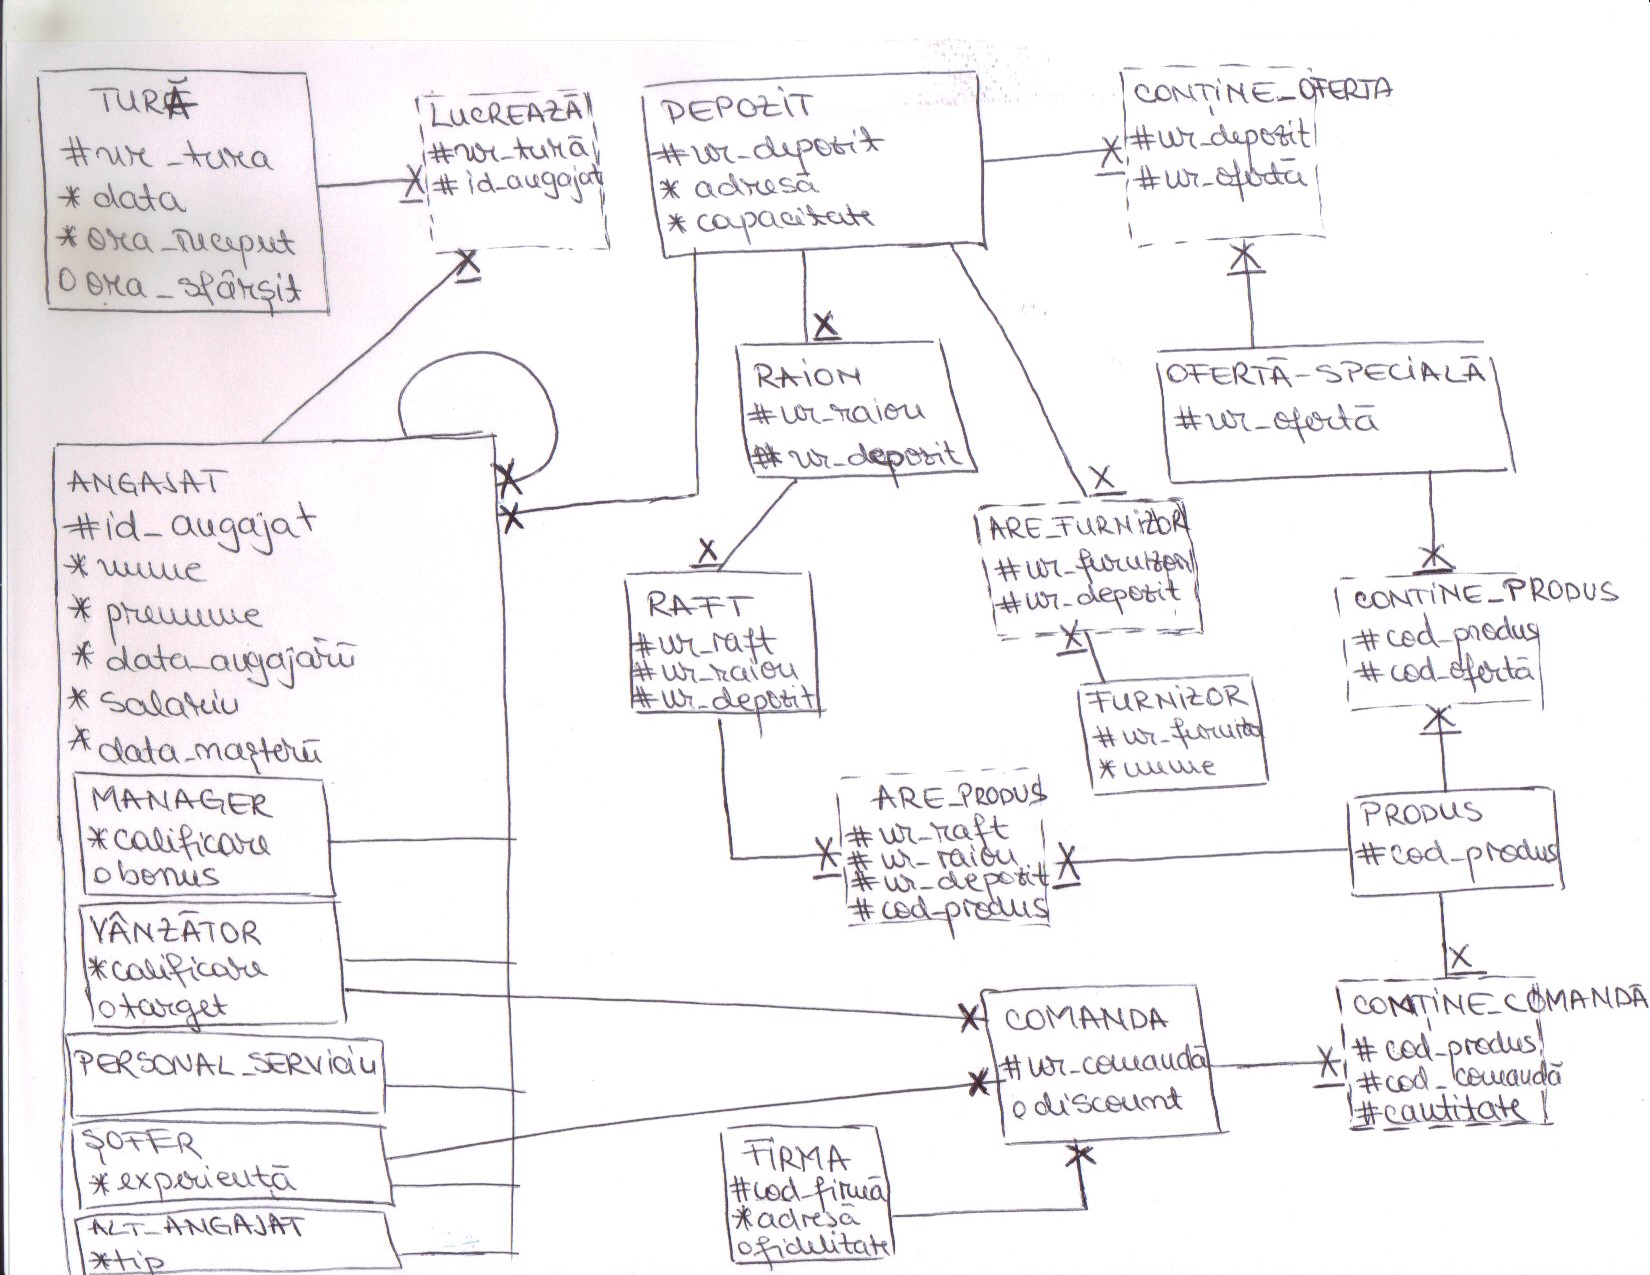 TURĂ
#nr_tura
* data
* ora_început
o ora_sfârșit
LUCREAZĂ
#nr_tură
# id_angajat
DEPOZIT
#nr_depozit
* adresă
* capacitate
CONȚINE_OFERTA
#nr_depozit
#nr_ofertă
RAION
#nr_raion
# nr_depozit
OFERTĂ-SPECIALĂ
#nr_ofertă
ANGAJAT
#id_angajat
* nume
* prenume
* data_angajării
* salariu
* data_nașterii
MANAGER
*calificare
o bonus
VÂNZĂTOR
*calificare
o target
PERSONAL_SERVICIU
ȘOFER
*experiență
ALT_ANGAJAT
*tip
RAFT
#nr_raft
#nr_raion
#nr_depozit
ARE_FURNIZOR
#nr_furnizor
#nr_depozit
FURNIZOR
*nume
CONTINE_PRODUS
# cod_produs
# cod_ofertă
ARE_PRODUS
# nr_raft
# nr_raion
# nr_depozit
# cod_produs
PRODUS
# cod_produs
COMANDA
#nr_comandă
o discount
CONȚINE_COMANDĂ
# cod_produs
#cod_comandă
#cantitate
FIRMA
#cod_firmă
*adresă
o fidelitate